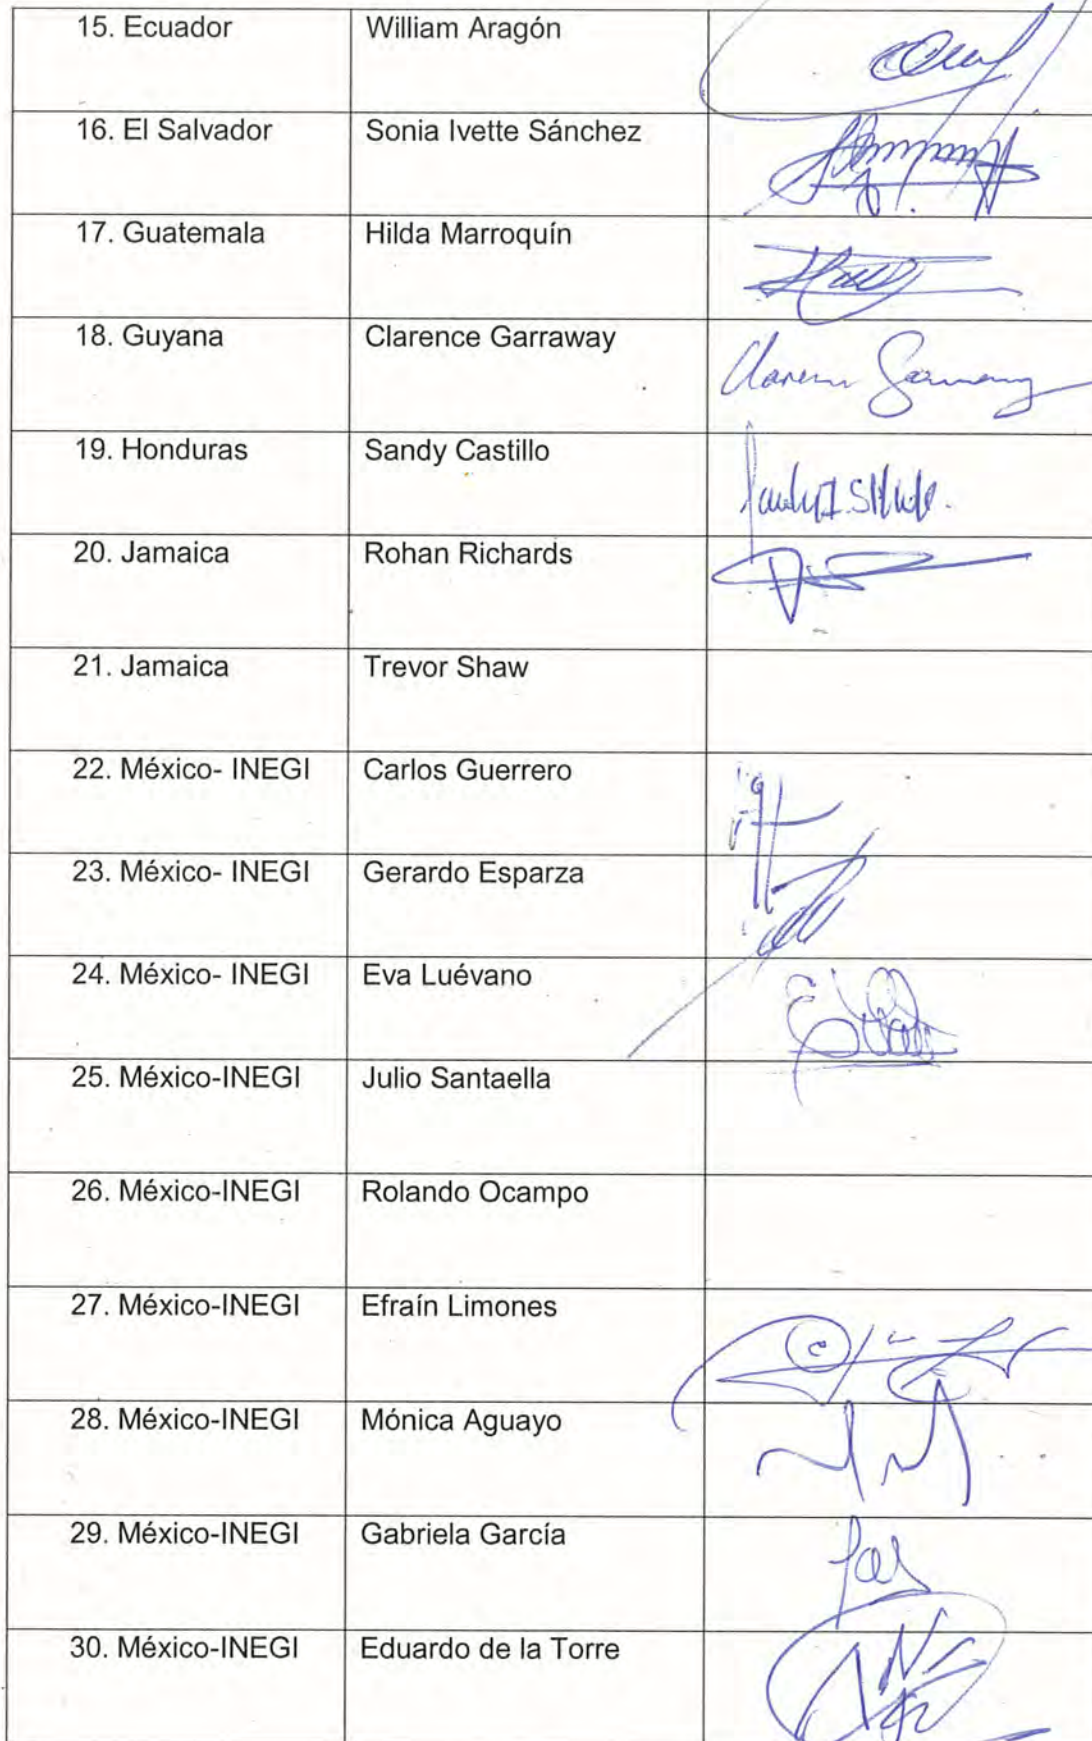 15. Ecuador William Aragón
16. El Salvador Sonia Ivette Sánchez
17. Guatemala Hilda Marroquín
18. Guyana Clarence Garraway
19. Honduras Sandy Castillo
20. Jamaica Rohan Richards
21. Jamaica Trevor Shaw
22. México- INEGI Carlos Guerrero
23. México- INEGI Gerardo Esparza
24. México- INEGI Eva Luévano
25. México-INEGI Julio Santaella
26. México-INEGI Rolando Ocampo
27. México-INEGI Efraín Limones
28. México-INEGI Mónica Aguayo
29. México-INEGI Gabriela García
30. México-INEGI Eduardo de la Torre